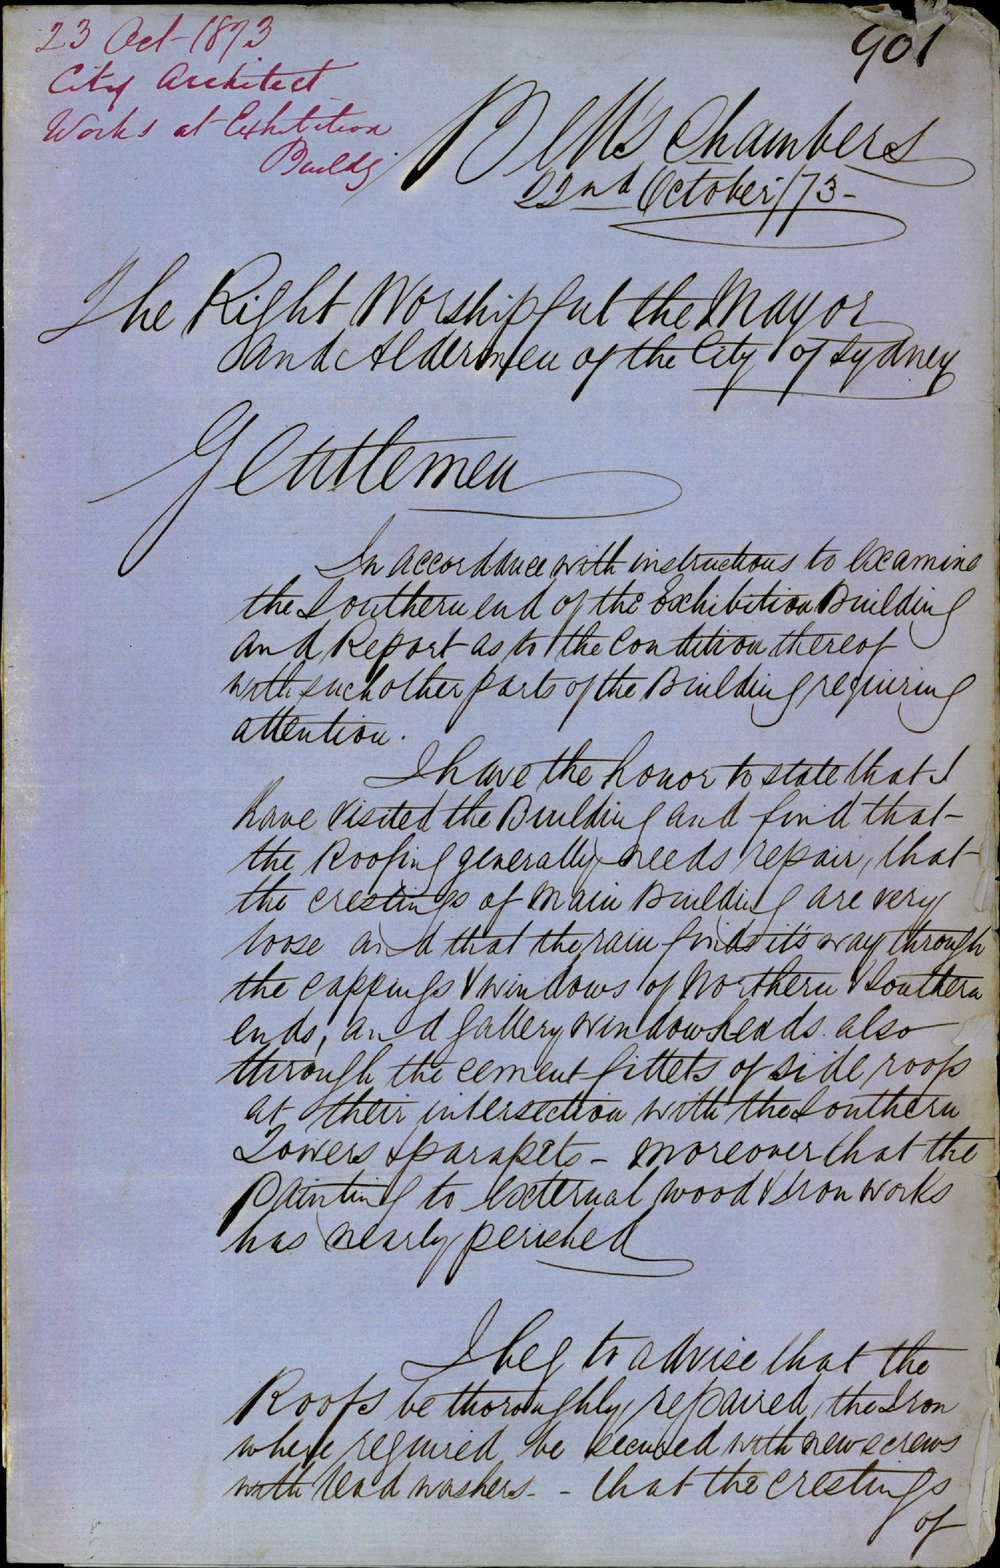 23 Oct 1873
City Architect
Works at Exhibition
Buildg
901
Bell's Chambers
22nd October/73-
The Right Worshipful the Mayor
and Aldermen of the City of Sydney
Gentlemen
In accordance with instructions to examine
the Southern end of the Exhibition Building
and Report as to the Condition thereof
with such other parts of the Building requiring
attention.
I have the honor to state that I
have visited the Building and find that
the Roofing generally needs repair, that
the crestings of Main Building are very
loose and that the rain finds it's way through
the cappings & windows of Northern & Southern
ends, and Gallery window heads. also
through the cement fittets of side roofs
at their intersection with the Southern
Towers & parapets - moreover that the
Painting to external wood & Iron works
has nearly perished
I beg to advise that the
Roofs be thoroughly repaired, the Iron
where required be secured with new screws
with lead washers. - that the crestings
of